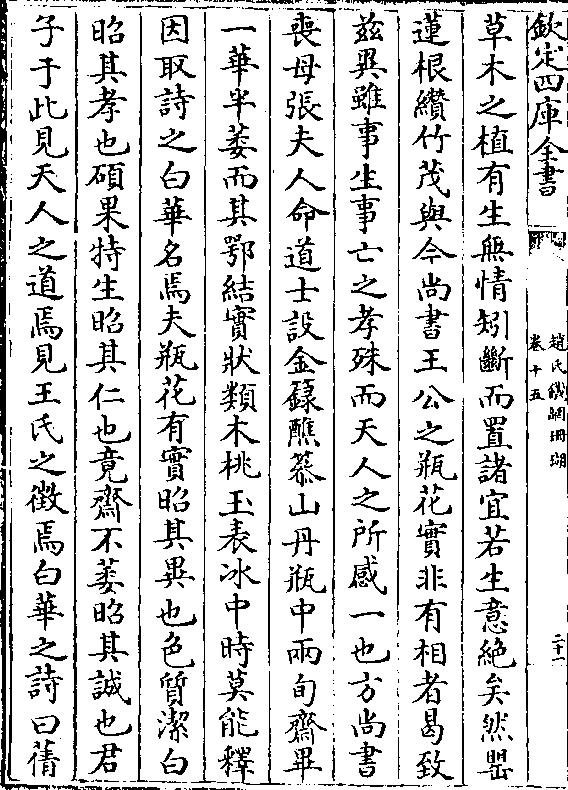 欽定四庫全書
趙氏鐵網珊瑚
卷十五
二十一
草木之植有生無情矧斷而置諸宜若生意絶矣然罌
蓮根纘竹茂與今尚書王公之瓶花實非有相者曷致
兹異雖事生事亡之孝殊而天人之所感一也方尚書
喪母張夫人命道士設金籙醮慕山丹瓶中兩旬齋畢
一華半萎而其鄂結實狀類木桃玉表冰中時莫能釋
因取詩之白華名焉夫瓶花有實昭其異也色質潔白
昭其孝也碩果特生昭其仁也竟齋不萎昭其誠也君
子于此見天人之道焉見王氏之徵焉白華之詩曰蒨